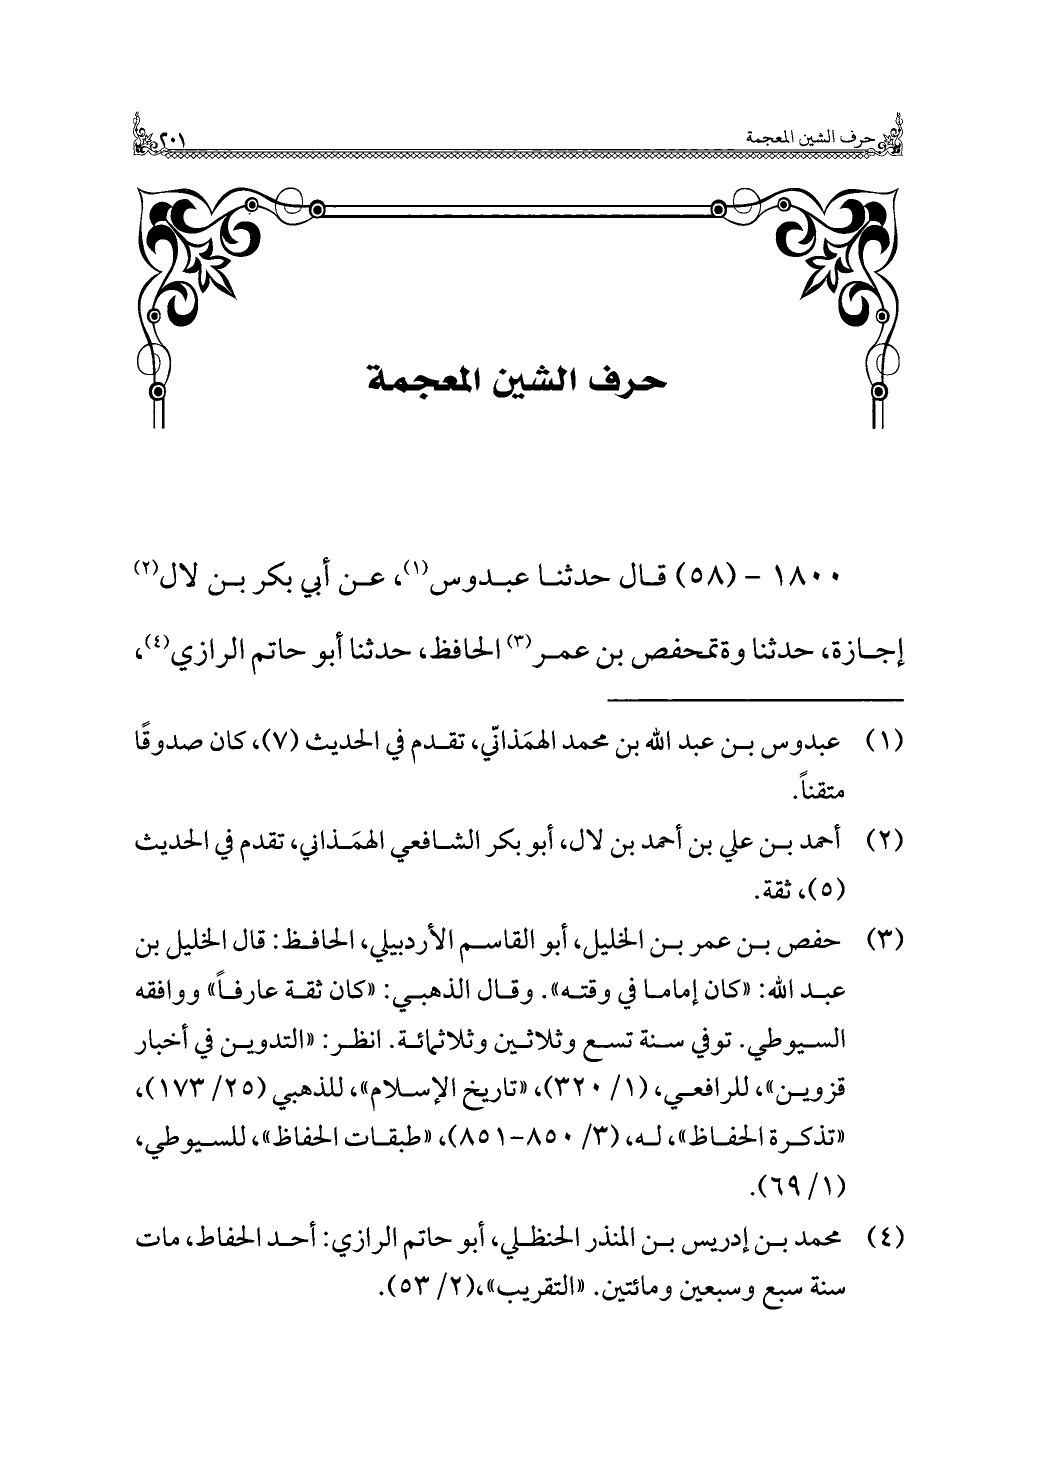 حرف الشين المعجمة ٢٠١
حرف الشين المعجمة
١٨٠٠ - (٥٨) قال حدثنا عبدوس(١)، عن أبي بكر بن لال(٢)
إجازة، حدثنا وةتمحفص بن عمر(٣) الحافظ، حدثنا أبو حاتم الرازي(٤)،
(١) عبدوس بن عبد الله بن محمد الهمَذانّي، تقدم في الحديث (٧)، كان صدوقًا
متقناً.
(٢) أحمد بن علي بن أحمد بن لال، أبو بكر الشافعي الهمَذاني، تقدم في الحديث
(٥)، ثقة.
(٣) حفص بن عمر بن الخليل، أبو القاسم الأردبيلي، الحافظ: قال الخليل بن
عبد الله: «كان إماما في وقته». وقال الذهبي: «كان ثقة عارفاً» ووافقه
السيوطي. توفي سنة تسع وثلاثين وثلاثمائة. انظر: «التدوين في أخبار
قزوين»، للرافعي، (١/ ٣٢٠)، «تاريخ الإسلام»، للذهبي (٢٥/ ١٧٣)،
«تذكرة الحفاظ»، له، (٣/ ٨٥٠-٨٥١)، «طبقات الحفاظ»، للسيوطي،
(١/ ٦٩).
(٤) محمد بن إدريس بن المنذر الحنظلي، أبو حاتم الرازي: أحد الحفاط، مات
سنة سبع وسبعين ومائتين. «التقريب»،(٢/ ٥٣).